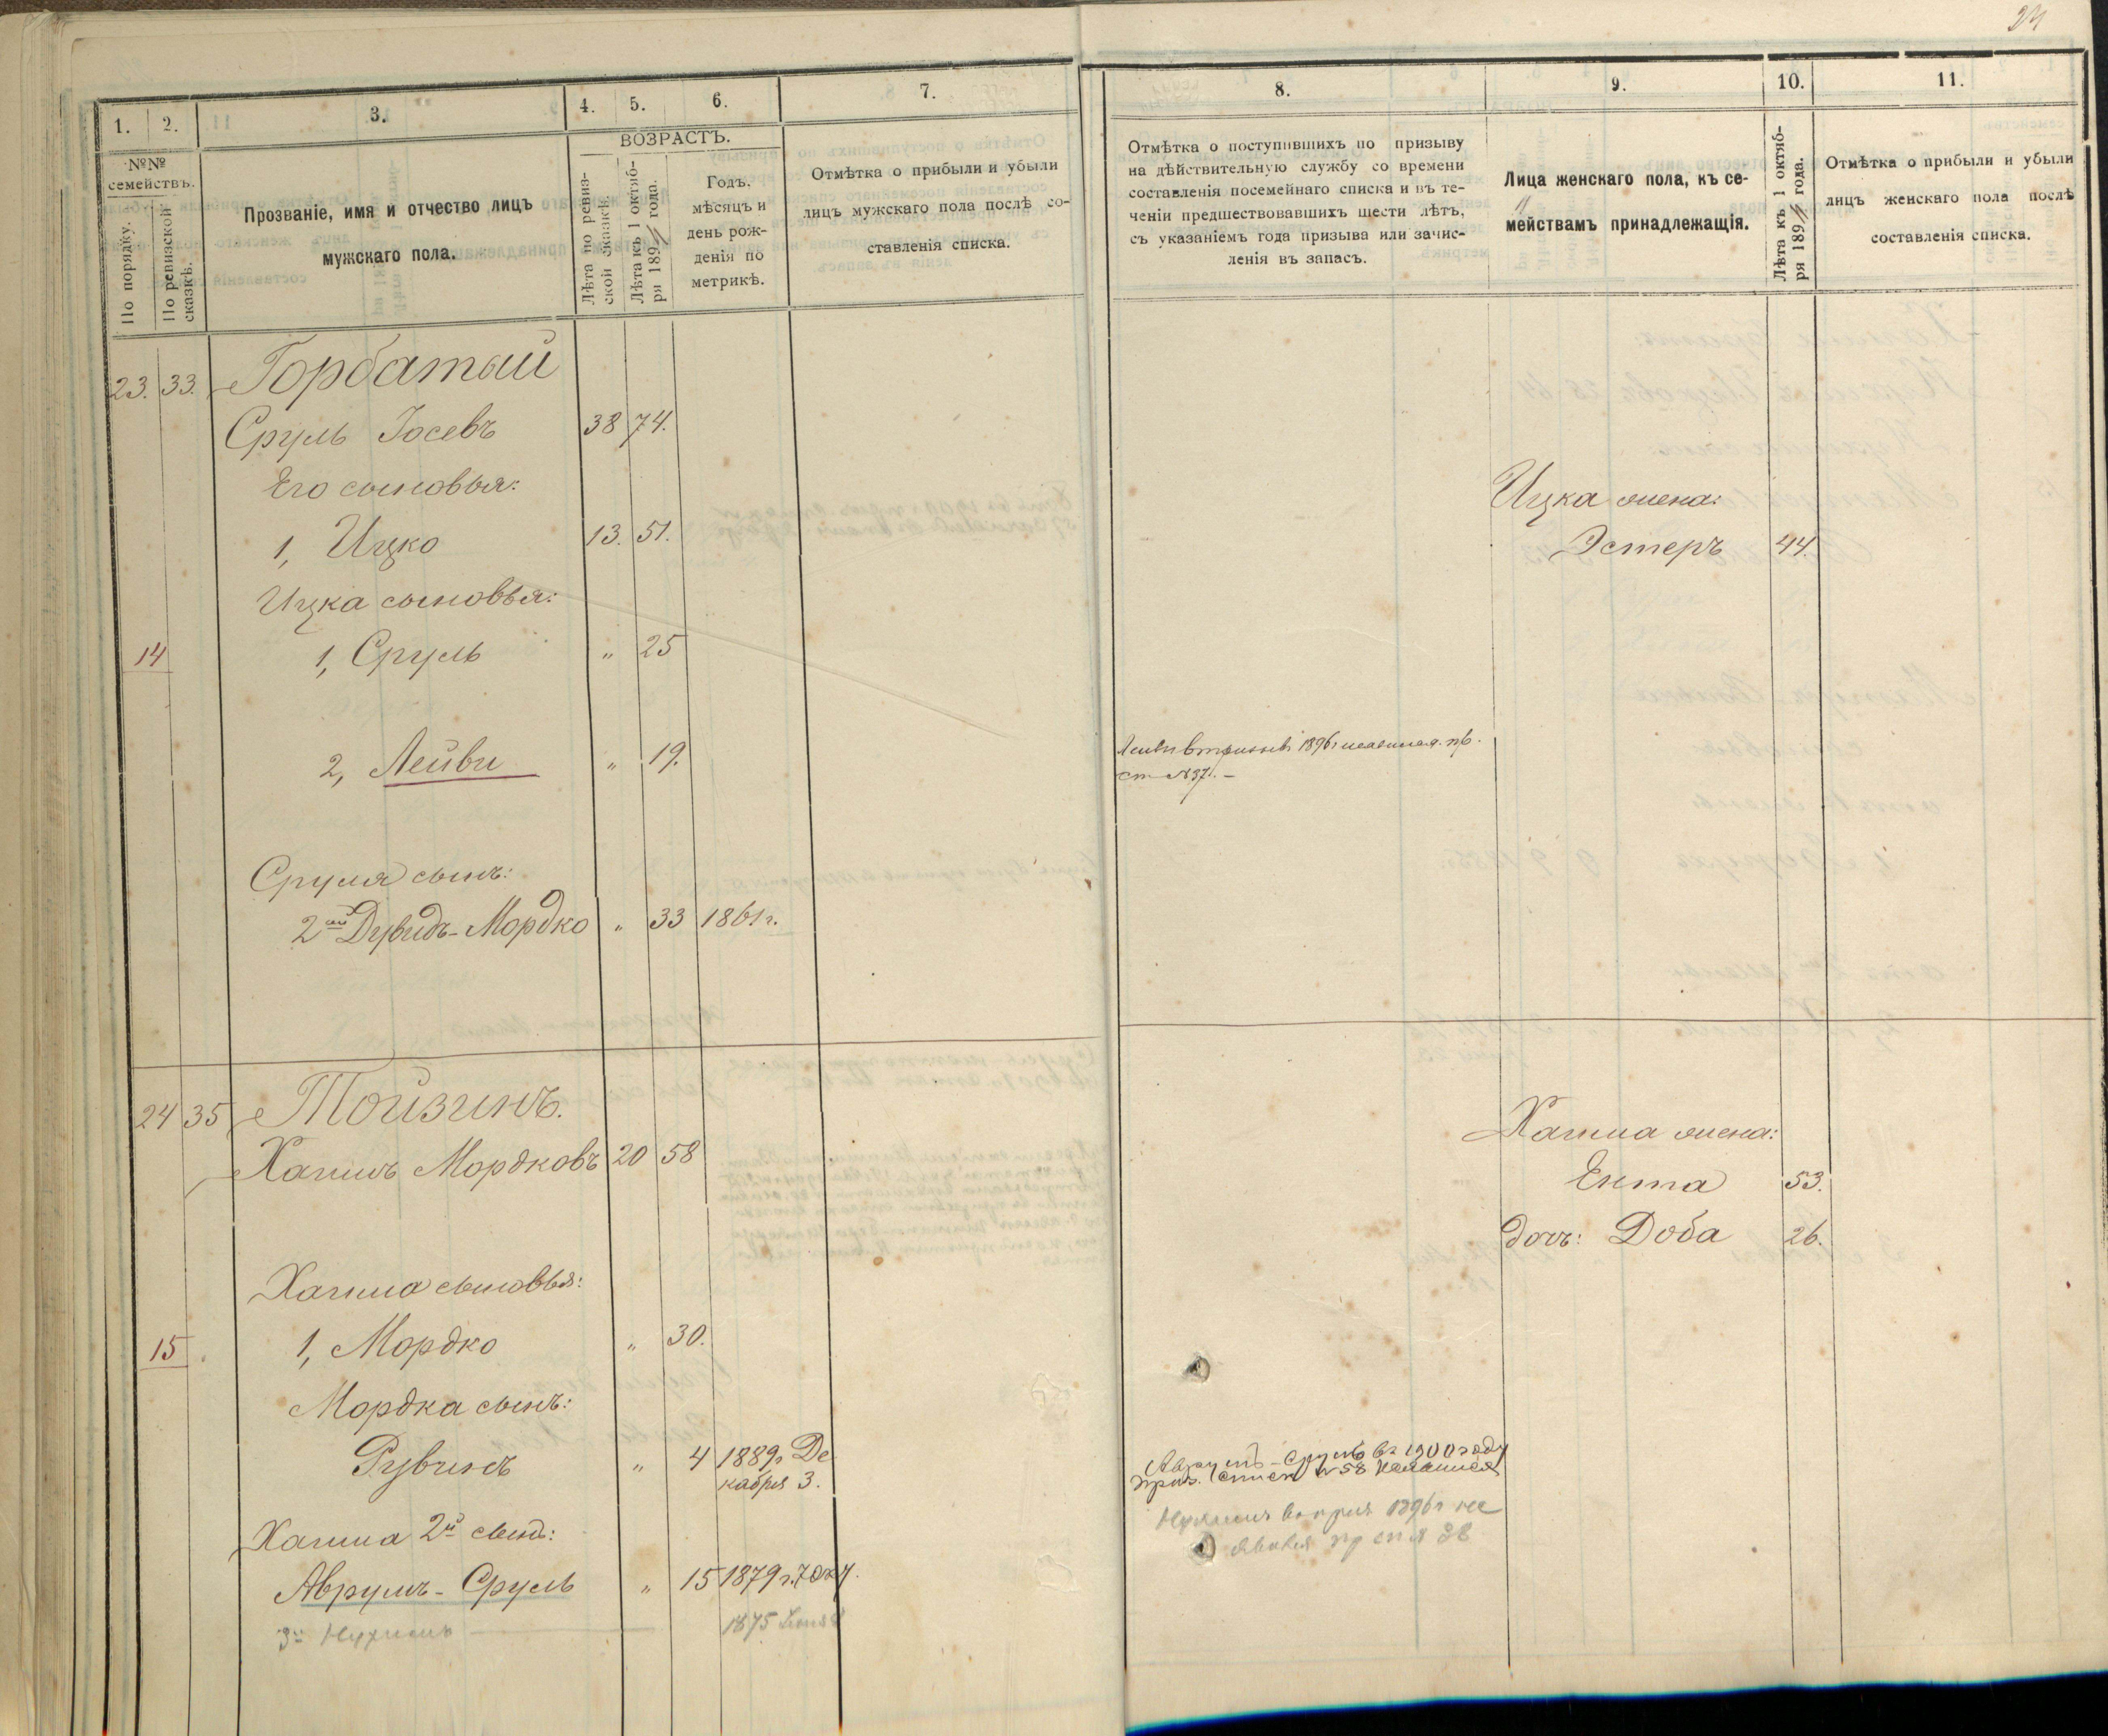 24
1.
2.
3.
4.
5.
6.
7.
8.
9.
10.
11.
№№ семействъ.
По порядку.
По ревизской сказкѣ.
Прозваніе, имя и отчество лицъ
мужскаго пола.
ВОЗРАСТЪ.
Лѣта по ревиз-
ской сказкѣ.
Лѣта къ 1 октяб-
ря 189 года.
Годъ,
мѣсяцъ и
день рож-
денія по
метрикѣ.
Отмѣтка о прибыли и убыли
лицъ мужскаго пола послѣ со-
ставленія списка.
Отмѣтка о поступившихъ по призыву
на дѣйствительную службу со времени
составленія посемейнаго списка и въ те-
ченіи предшествовавшихъ шести лѣтъ,
съ указаніемъ года призыва или зачис-
ленія въ запасъ.
Лица женскаго пола, къ се-
мействамъ принадлежащія.
Лѣта къ 1 октяб-
ря 189 года.
Отмѣтка о прибыли и убыли
лицъ женскаго пола послѣ
составленія списка.
23. 33. Горбатый
Сруль Іосевъ 38 74.
Его сыновья:
Ицка жена:
1, Ицко 13. 51.
Эстеръ 44.
Ицка сыновья:
14 1, Сруль " 25
2, Лейви " 19.
1896 г
ст №37. –
Сруля сынъ:
2ой Дувидъ-Мордко " 33 1861 г.
24 35 Тойзинъ.
Хаима жена:
Хаимъ Мордковъ 20 58
Ента 53.
дочь: Доба 26.
Хаима сыновья:
15 1, Мордко " 30.
Мордка сынъ:
Рувинъ " 4 1889 г Де
кабря 3.
Аврумъ-Сруль въ 1900 году
приз. спис № 58 неявился
Нухимъ 1896 г не
явился пр сп № 38
Хаима 2й сынъ:
Аврумъ-Сруль " 15 1879 г.
3й Нухимъ 1875